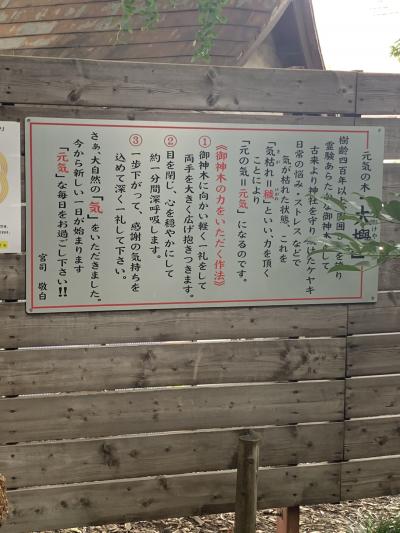 元気の木「大欅」
樹齢四百年以上
霊験あらたかな御神木として
古来より神社を守り
ケヤキ
日常の悩み・ストレスなどで
気が枯れた状態、これを
「気枯れ＝穢」といい、力を頂く
ことにより
「元の気＝元気」になるのです。
《御神木の力をいただく作法》
① 御神木に向かい軽く一礼をして
両手を大きく広げ抱きつきます。
② 目を閉じ、心を穏やかにして
約一分間深呼吸します。
③ 一歩下がって、感謝の気持ちを
込めて深く一礼して下さい。
さぁ、大自然の「気」をいただきました。
今から新しい一日が始まります
「元気」な毎日をお過ごし下さい!!
宮司 敬白